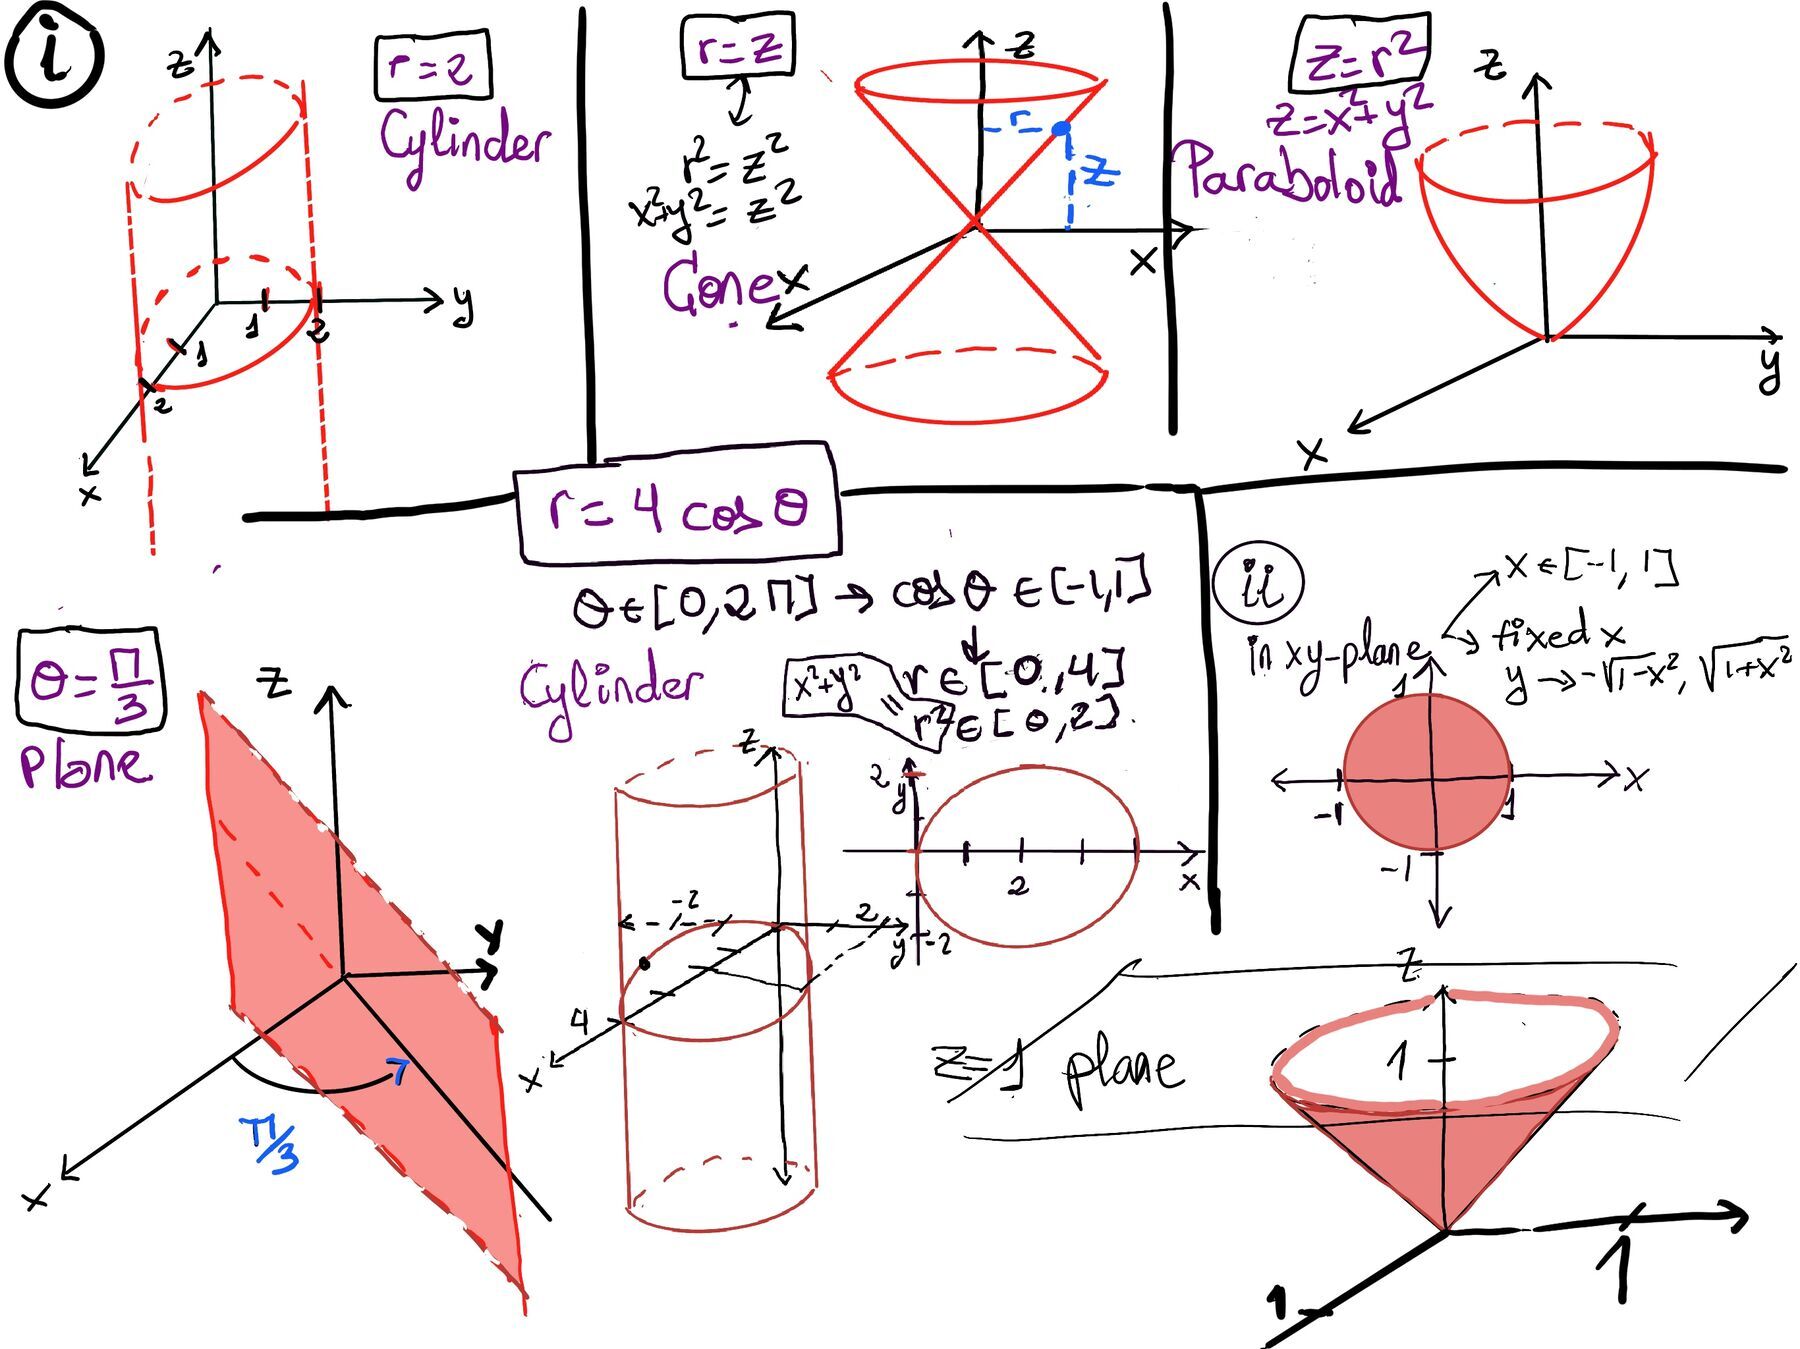 i
z
r = 2
Cylinder
y
1
2
1
2
x
r = z
r² = z²
x²+y² = z²
Cone
z
r
z
x
x
z = r²
z = x²+y²
Paraboloid
z
y
x
r = 4 cos θ
θ ∈ [0, 2π] → cos θ ∈ [-1, 1]
↓
r ∈ [0, 4]
x²+y² = r² ∈ [0, 2].
Cylinder
θ = π/3
plane
z
y
x
π/3
z
-2
2
y
4
x
2
y
2
x
-2
ii
in xy-plane
x ∈ [-1, 1]
fixed x
y → -√1-x², √1+x²
1
x
-1
1
-1
z = 1 plane
z
1
1
1